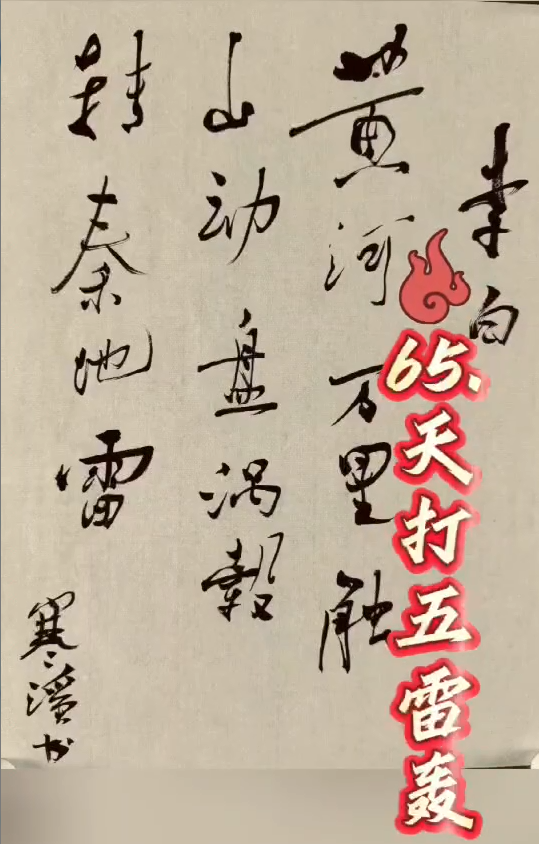 李白
黄河万里触
山动盘涡毂
转秦地雷
寒溪书
65.天打五雷轰